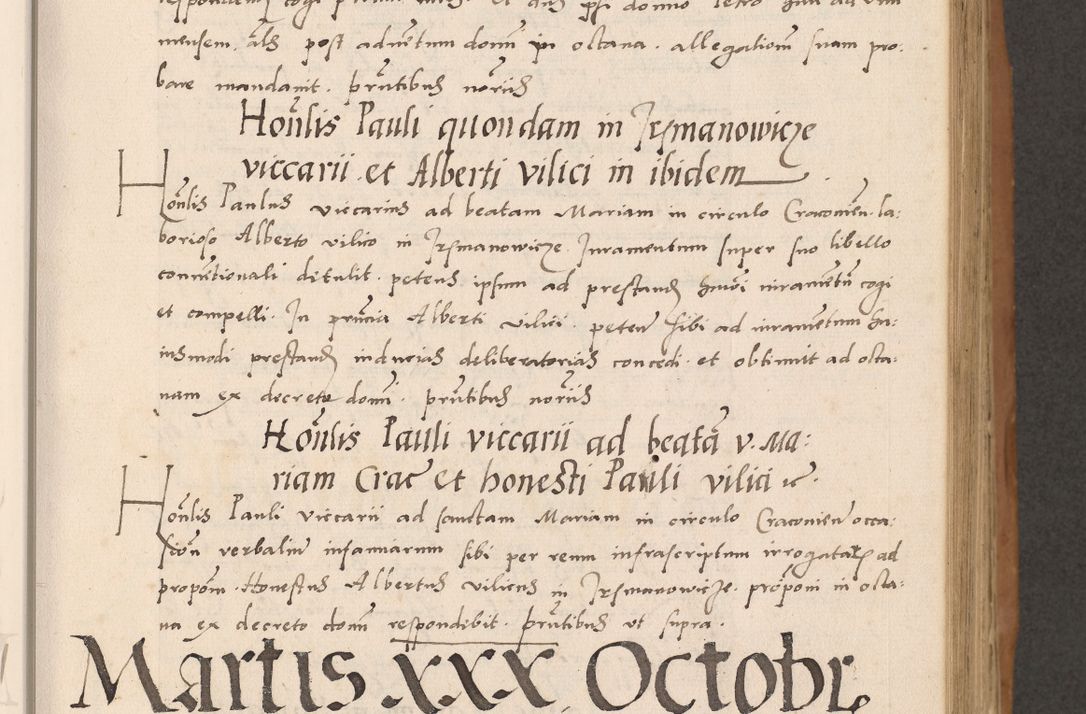 mensem als post aduentum domi in octaua. allegationem suam pro:
bare mandauit. prntibus noriis
Honlis Pauli quondam in Irzmanowicze
viccarii et Alberti vilici in ibidem
Honlis Paulus viccarius ad beatam Mariam in circulo Cracouien. la:
borioso Alberto vilico in Irzmanowicze. Iuramentum super suo libello
conuentionali detulit. petens ipsum ad prestand huiusmodi iuramentum cogi
et compelli. In prncia Alberti vilici. peten sibi ad iuramentum hu:
iusmodi prestand inducias deliberatorias concedi. et obtinuit ad octa:
uam ex decreto domi. prntibus noriis
Honlis Pauli viccarii ad beatã v. Ma:
riam Crac et honesti Pauli vilici ic.
Honlis Pauli viccarii ad sanctam Mariam in circulo Cracouien occa:
sion verbalium infamiarum sibi per reum infrascriptum irrogatar ad
propom. Honestus Albertus vilicus in Irzmanowicze. propom in octa:
ua ex decreto domi respondebit. prntibus vt supra.
Martis xxx Octobr